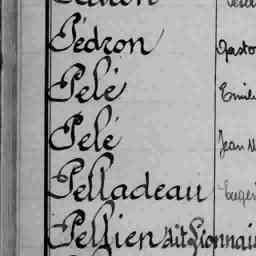 Pédron Gasto
Pelé Emile
Pelé Jean M
Pelladeau Eugè
Pellien dit Lionnais